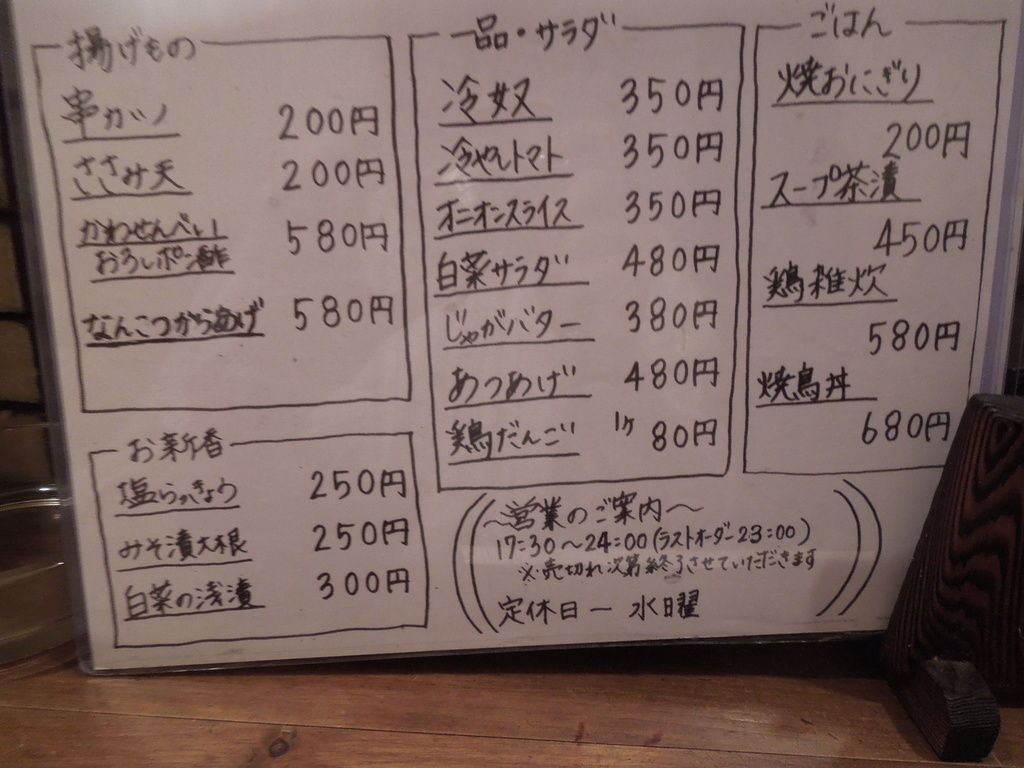 揚げもの
串カツ 200円
ささみ天 200円
かわせんべい 580円
おろしポン酢
なんこつからあげ 580円
お新香
塩らっきょう 250円
みそ漬大根 250円
白菜の浅漬 300円
一品・サラダ
冷奴 350円
冷やしトマト 350円
オニオンスライス 350円
白菜サラダ 480円
じゃがバター 380円
あつあげ 480円
鶏だんご 1ケ 80円
ごはん
焼おにぎり
200円
スープ茶漬
450円
鶏雑炊
580円
焼鳥丼
680円
〜営業のご案内〜
17:30〜24:00(ラストオーダー23:00)
※売切れ次第終了させていただきます
定休日ー水曜